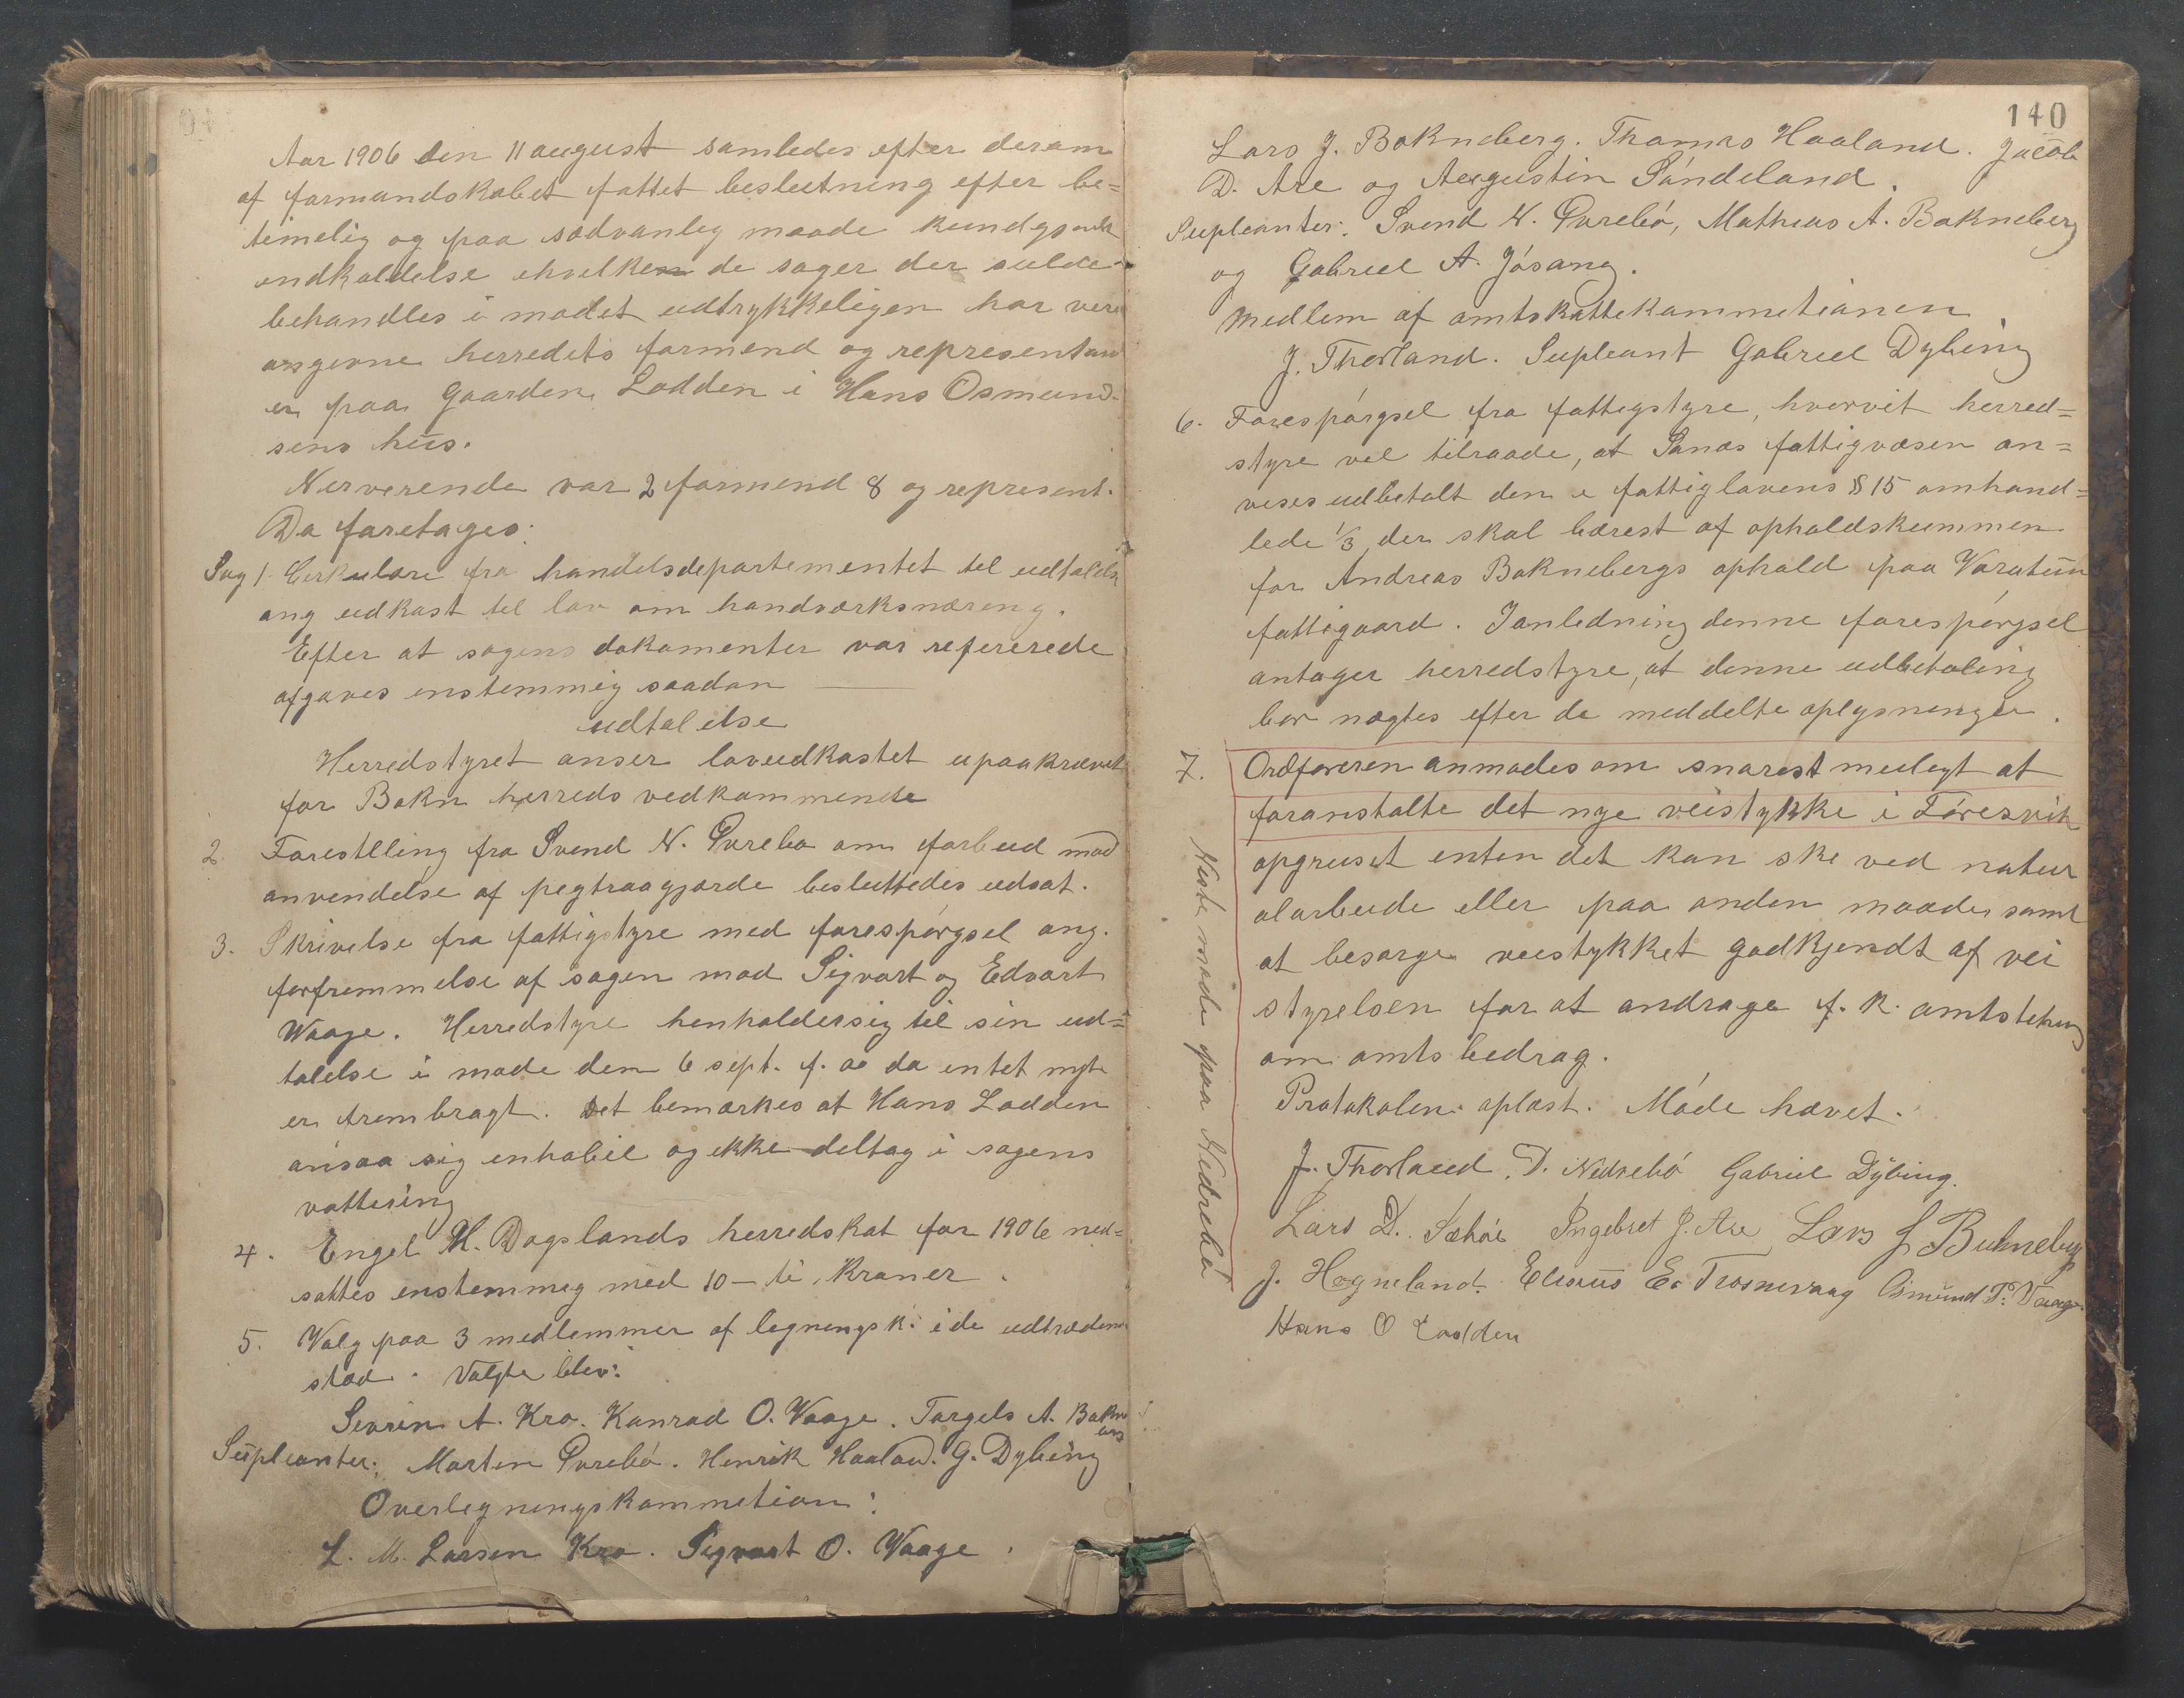 Aar 1906 den 11 august samledes efter derom
af formandskabet fattet beslutning efter be=
timelig og paa sædvanleg maade kundgjordt
indkaldelse ihvilken de sager der sulde
behandles i mødet udtrykkeligen har vere
angivne herredets formend og representan
er paa gaarden Lodden i Hans Osmund-
sens hus.
Nerverende var 2 formend 8 og represent.
Da foretages:
Sag 1. Cirkulære fra handelsdepartementet til udtalelse
ang udkast til lov om handværksnæring.
Efter at sagens dokumenter var refererede
afgaves enstemmig saadan
udtalelse
Herredstyret anser lovudkastet upaakrævet
for Bokn herreds vedkommende
2. Forestlling fra Svend N. Øvrebø om forbud mod
anvendelse af pegtraagjærde besluttedes udsat.
3. Skrivelse fra fattigstyre med forespørgsel ang.
forfremmelse af sagen mod Sigvart og Edvart
Waage. Herredstyre henholdersig til sin ud=
talelse i møde den 6 sept. f. aa da intet nyt
er frembragt. Det bemærkes at Hans Lodden
ansaa sig inhabil og ikke deltog i sagens
vottering
4. Engel M. Dagslands herredskat for 1906 ned=
sattes enstemmig med 10 – ti, kroner.
5. Valg paa 3 medlemmer af legningsk: i de udtrædend
sted. Valgte blev:
Sevrin A. Kro. Konrad O. Waage. Torgels A. Bokn
Supleanter: Morten Øvrebø. Henrik Haaland. G. Dybing
Overlegningskommetion:
L. M. Larsen Kro. Sigvart O. Waage.
140
Lars J. BoknebErg. Thomas Haaland. Jacob
D. Are og Augustin Søndeland.
Supleanter: Svend N. Øvrebø, Mathias A. Bokneberg
og Gabriel A. Jøsang.
Medlem af amtskattekommetionen
J. Thorland. Supleant Gabriel Dybing
6. Forespørgsel fra fattigstyre, hvorvit herred=
styre vil tilraade, at Sanæs fattigvæsen an=
vises udbetalt den i fattiglovens § 15 omhand=
lede 1/3 der skal bærest af opholdskummen
for Andreas Boknebergs ophold paa Varatun
fattigaard. Ianledning denne forespørgsel
antager herredstyre, at denne udbetaling
bør nægtes efter de meddelte oplysninger.
7. Ordføreren anmodes om snarest muligt at
foranstalte det nye veistykke i Føresvik
opgruset enten det kan ske ved natur
alarbeide eller paa anden maade samt
at besørge veistykket godkjendt af vei
styrelsen for at andrage f. k. amtsting
om amtsbidrag.
Protokolen oplæst. Møde hævet.
J. Thorland. D. Nedrebø Gabriel Dybing.
Lars D. Sæbøe Ingebret J. Are Lars J Bokneberg
J. Hognaland. Elias E. Trosnevaag Osmund T. Vaage
Hans O Lodden
Neste møde paa Nedrebø